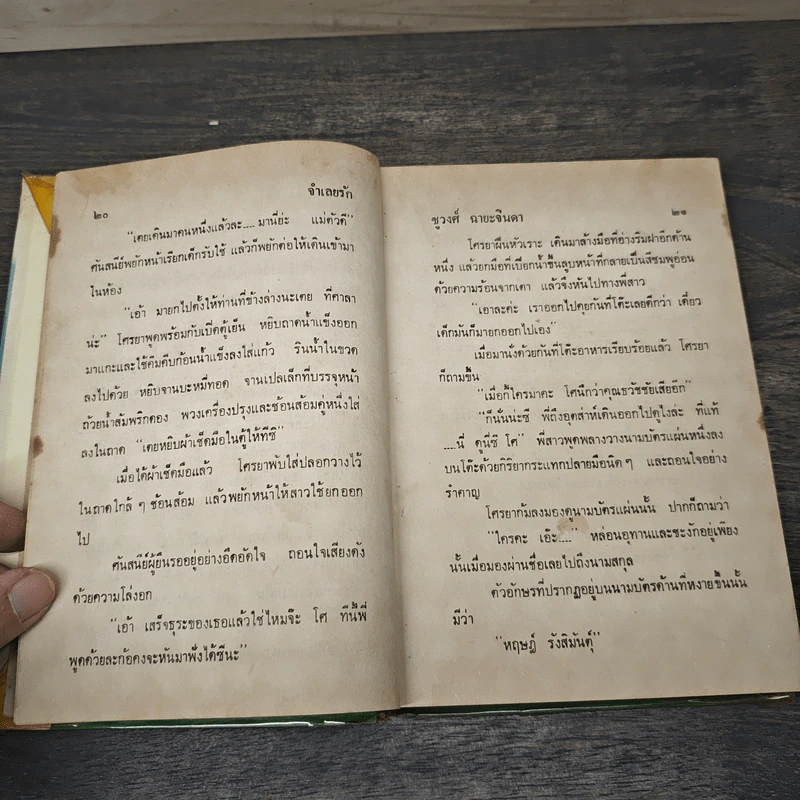 ๒๐
จำเลยรัก
"เตยเดินมาคนหนึ่งแล้วละ.... มานี่ย่ะ แม่ตัวดี"
ศันสนีย์พยักหน้าเรียกเด็กรับใช้ แล้วก็พยักต่อให้เดินเข้ามา
ในห้อง
"เอ้า มายกไปตั้งให้ท่านที่ข้างล่างนะเตย ที่ศาลา
น่ะ" โศรยาพูดพร้อมกับเปิดตู้เย็น หยิบถาดน้ำแข็งออก
มาแกะและใช้คีมคีบก้อนน้ำแข็งลงใส่แก้ว รินน้ำในขวด
ลงไปด้วย หยิบจานบะหมี่ทอด จานเปลเล็กที่บรรจุหน้า
ถ้วยน้ำส้มพริกดอง พวงเครื่องปรุงและช้อนส้อมคู่หนึ่งใส่
ลงในถาด "เตยหยิบผ้าเช็ดมือในตู้ให้ทีซิ"
เมื่อได้ผ้าเช็ดมือแล้ว โศรยาพับใส่ปลอกวางไว้
ในถาดใกล้ ๆ ช้อนส้อม แล้วพยักหน้าให้สาวใช้ยกออก
ไป
ศันสนีย์ผู้ยืนรออยู่อย่างอึดอัดใจ ถอนใจเสียงดัง
ด้วยความโล่งอก
"เอ้า เสร็จธุระของเธอแล้วใช่ไหมจ๊ะ โศ ทีนี้พี่
พูดด้วยละก้อคงจะหันมาฟังได้ซีนะ"
ชูวงศ์ ฉายะจินดา
๒๑
โศรยาฝืนหัวเราะ เดินมาล้างมือที่อ่างริมฝาอีกด้าน
หนึ่ง แล้วยกมือที่เปียกน้ำขึ้นลูบหน้าที่กลายเป็นสีชมพูอ่อน
ด้วยความร้อนจากเตา แล้วจึงหันไปทางพี่สาว
"เอาละค่ะ เราออกไปคุยกันที่โต๊ะเลยดีกว่า เดี๋ยว
เด็กมันก็มายกออกไปเอง"
เมื่อมานั่งด้วยกันที่โต๊ะอาหารเรียบร้อยแล้ว โศรยา
ก็ถามขึ้น
"เมื่อกี้ใครมาคะ โศนึกว่าคุณธวัชชัยเสียอีก"
"ก็นั่นน่ะซี พี่ถึงอุตส่าห์เดินออกไปดูไงล่ะ ที่แท้
....นี่ ดูนี่ซี โศ" พี่สาวพูดพลางวางนามบัตรแผ่นหนึ่งลง
บนโต๊ะด้วยกิริยากระแทกปลายมือนิด ๆ และถอนใจอย่าง
รำคาญ
โศรยาก้มลงมองดูนามบัตรแผ่นนั้น ปากก็ถามว่า
"ใครคะ เอ๊ะ...." หล่อนอุทานและชะงักอยู่เพียง
นั้นเมื่อมองผ่านชื่อเลยไปถึงนามสกุล
ตัวอักษรที่ปรากฏอยู่บนนามบัตรด้านที่หงายขึ้นนั้น
มีว่า
"หฤษฎ์ รังสิมันตุ์"